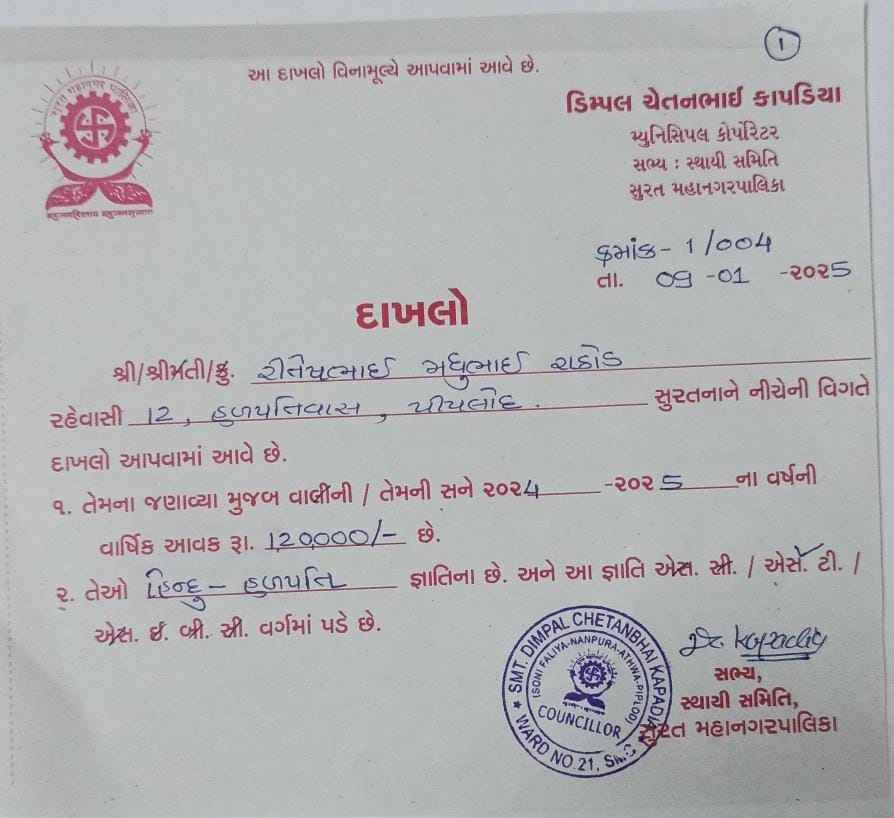 ૧
આ દાખલો વિનામૂલ્યે આપવામાં આવે છે.
સુરત મહાનગર પાલિકા
ડિમ્પલ ચેતનભાઈ કાપડિયા
મ્યુનિસિપલ કોર્પોરેટર
સભ્ય : સ્થાયી સમિતિ
સુરત મહાનગરપાલિકા
ક્રમાંક - 1/004
તા. 09 - 01 -૨૦૨5
દાખલો
શ્રી/શ્રીમતી/કુ. રીતેષભાઈ મધુભાઈ રાઠોડ
રહેવાસી 12, હળપતિવાસ, પીપલોદ. સુરતનાને નીચેની વિગતે
દાખલો આપવામાં આવે છે.
૧. તેમના જણાવ્યા મુજબ વાલીની / તેમની સને ૨૦૨4 -૨૦૨5 ના વર્ષની
વાર્ષિક આવક રૂા. 1,20,000/- છે.
૨. તેઓ હિન્દુ - હળપતિ જ્ઞાતિના છે. અને આ જ્ઞાતિ એસ. સી. / એસ. ટી. /
એસ. ઈ. બી. સી. વર્ગમાં પડે છે.
SMT. DIMPAL CHETANBHAI KAPADIA
(SONI FALIYA-NANPURA-ATHWA-PIPLOD)
COUNCILLOR
WARD NO.21, SMC
સભ્ય,
સ્થાયી સમિતિ,
સુરત મહાનગરપાલિકા